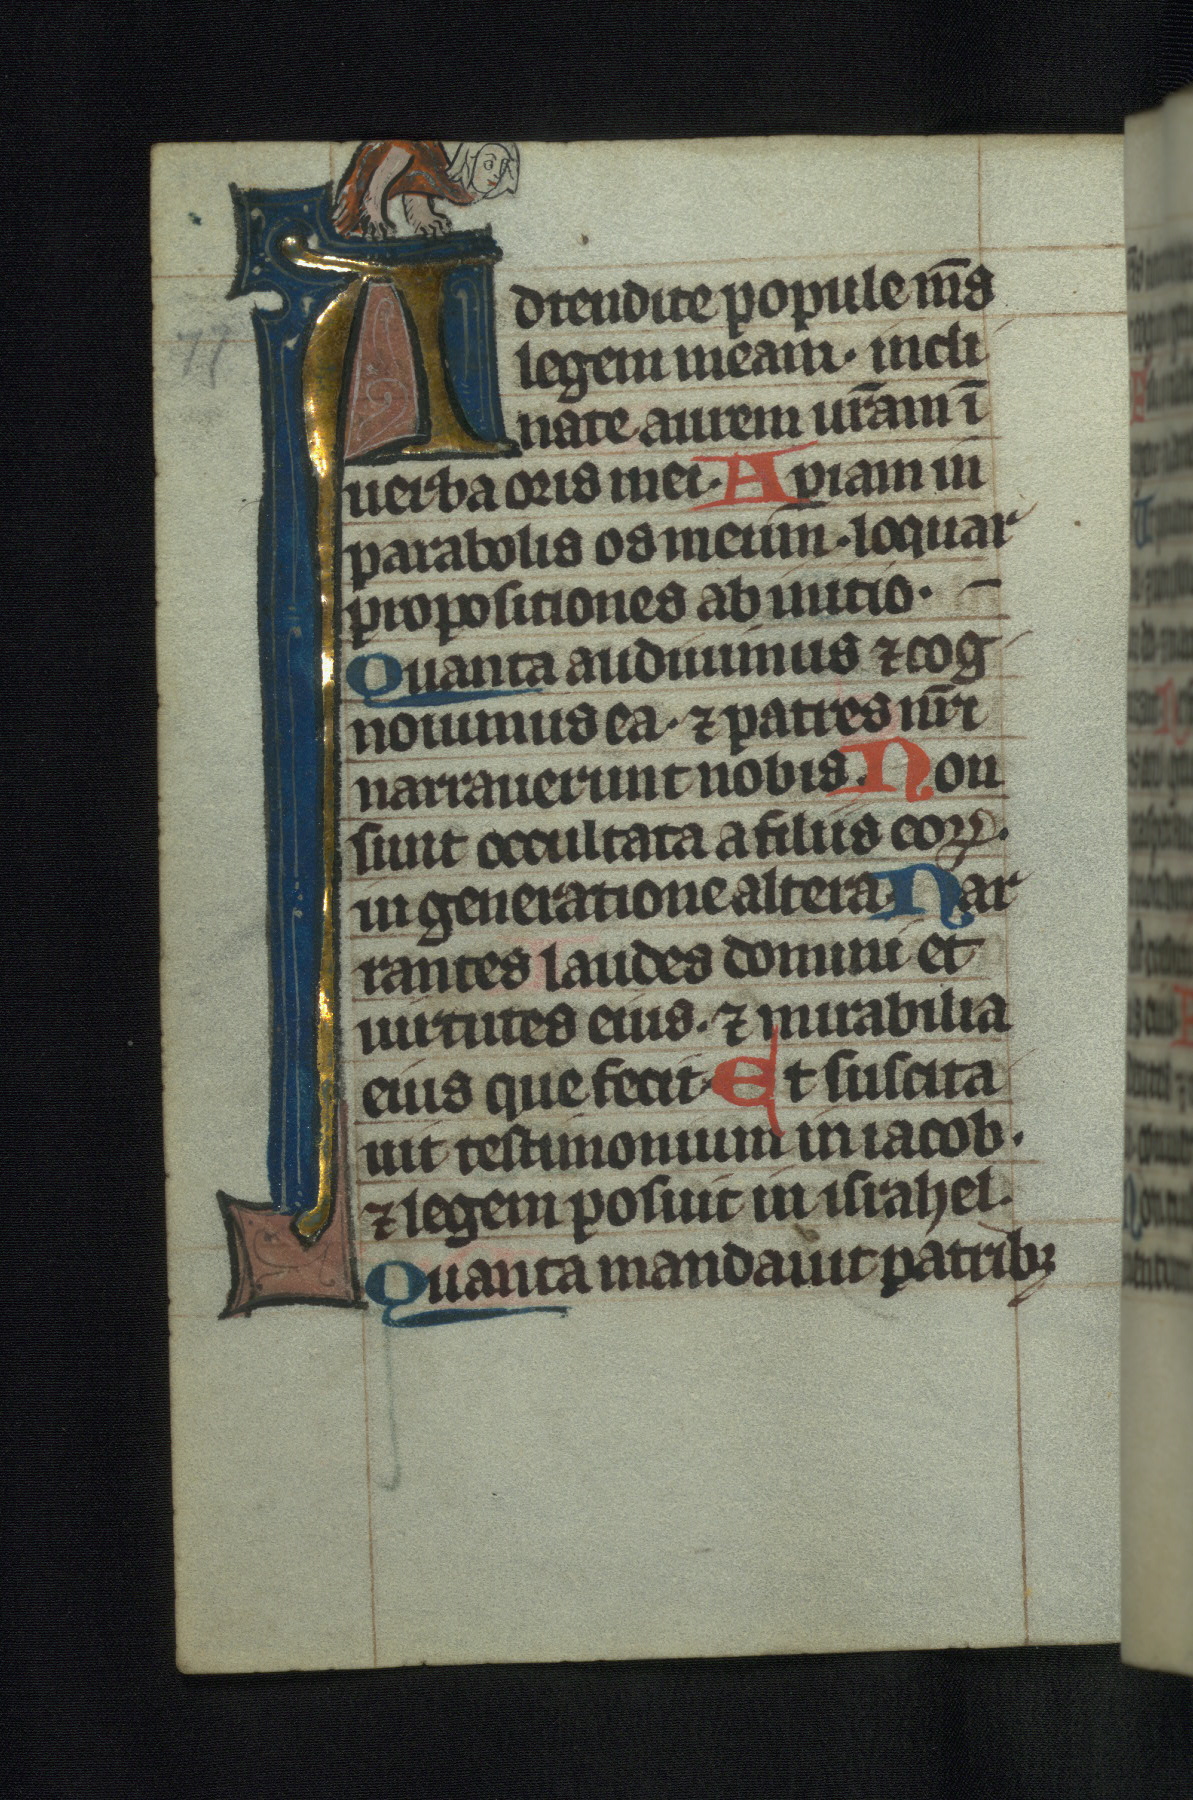 77
Adtendite popule m̅s
legem meam · incli
nate aurem ur̅am ı̅
uerba oris mei · Apiam in
parabolis os meum · loquar
propositiones ab initio · –
Quanta audiuimus ⁊ cog
nouimus ea · ⁊ patres nr̅i
narrauerunt nobis · Non
sunt occultata a filiis eoꝝ ·
in generatione altera · Nar
rantes laudes domini et
uirtutes eius · ⁊ mirabilia
eius que fecit · Et suscita
uit testimonium in iacob ·
⁊ legem posuit in israhel ·
Quanta mandauit patribꝫ